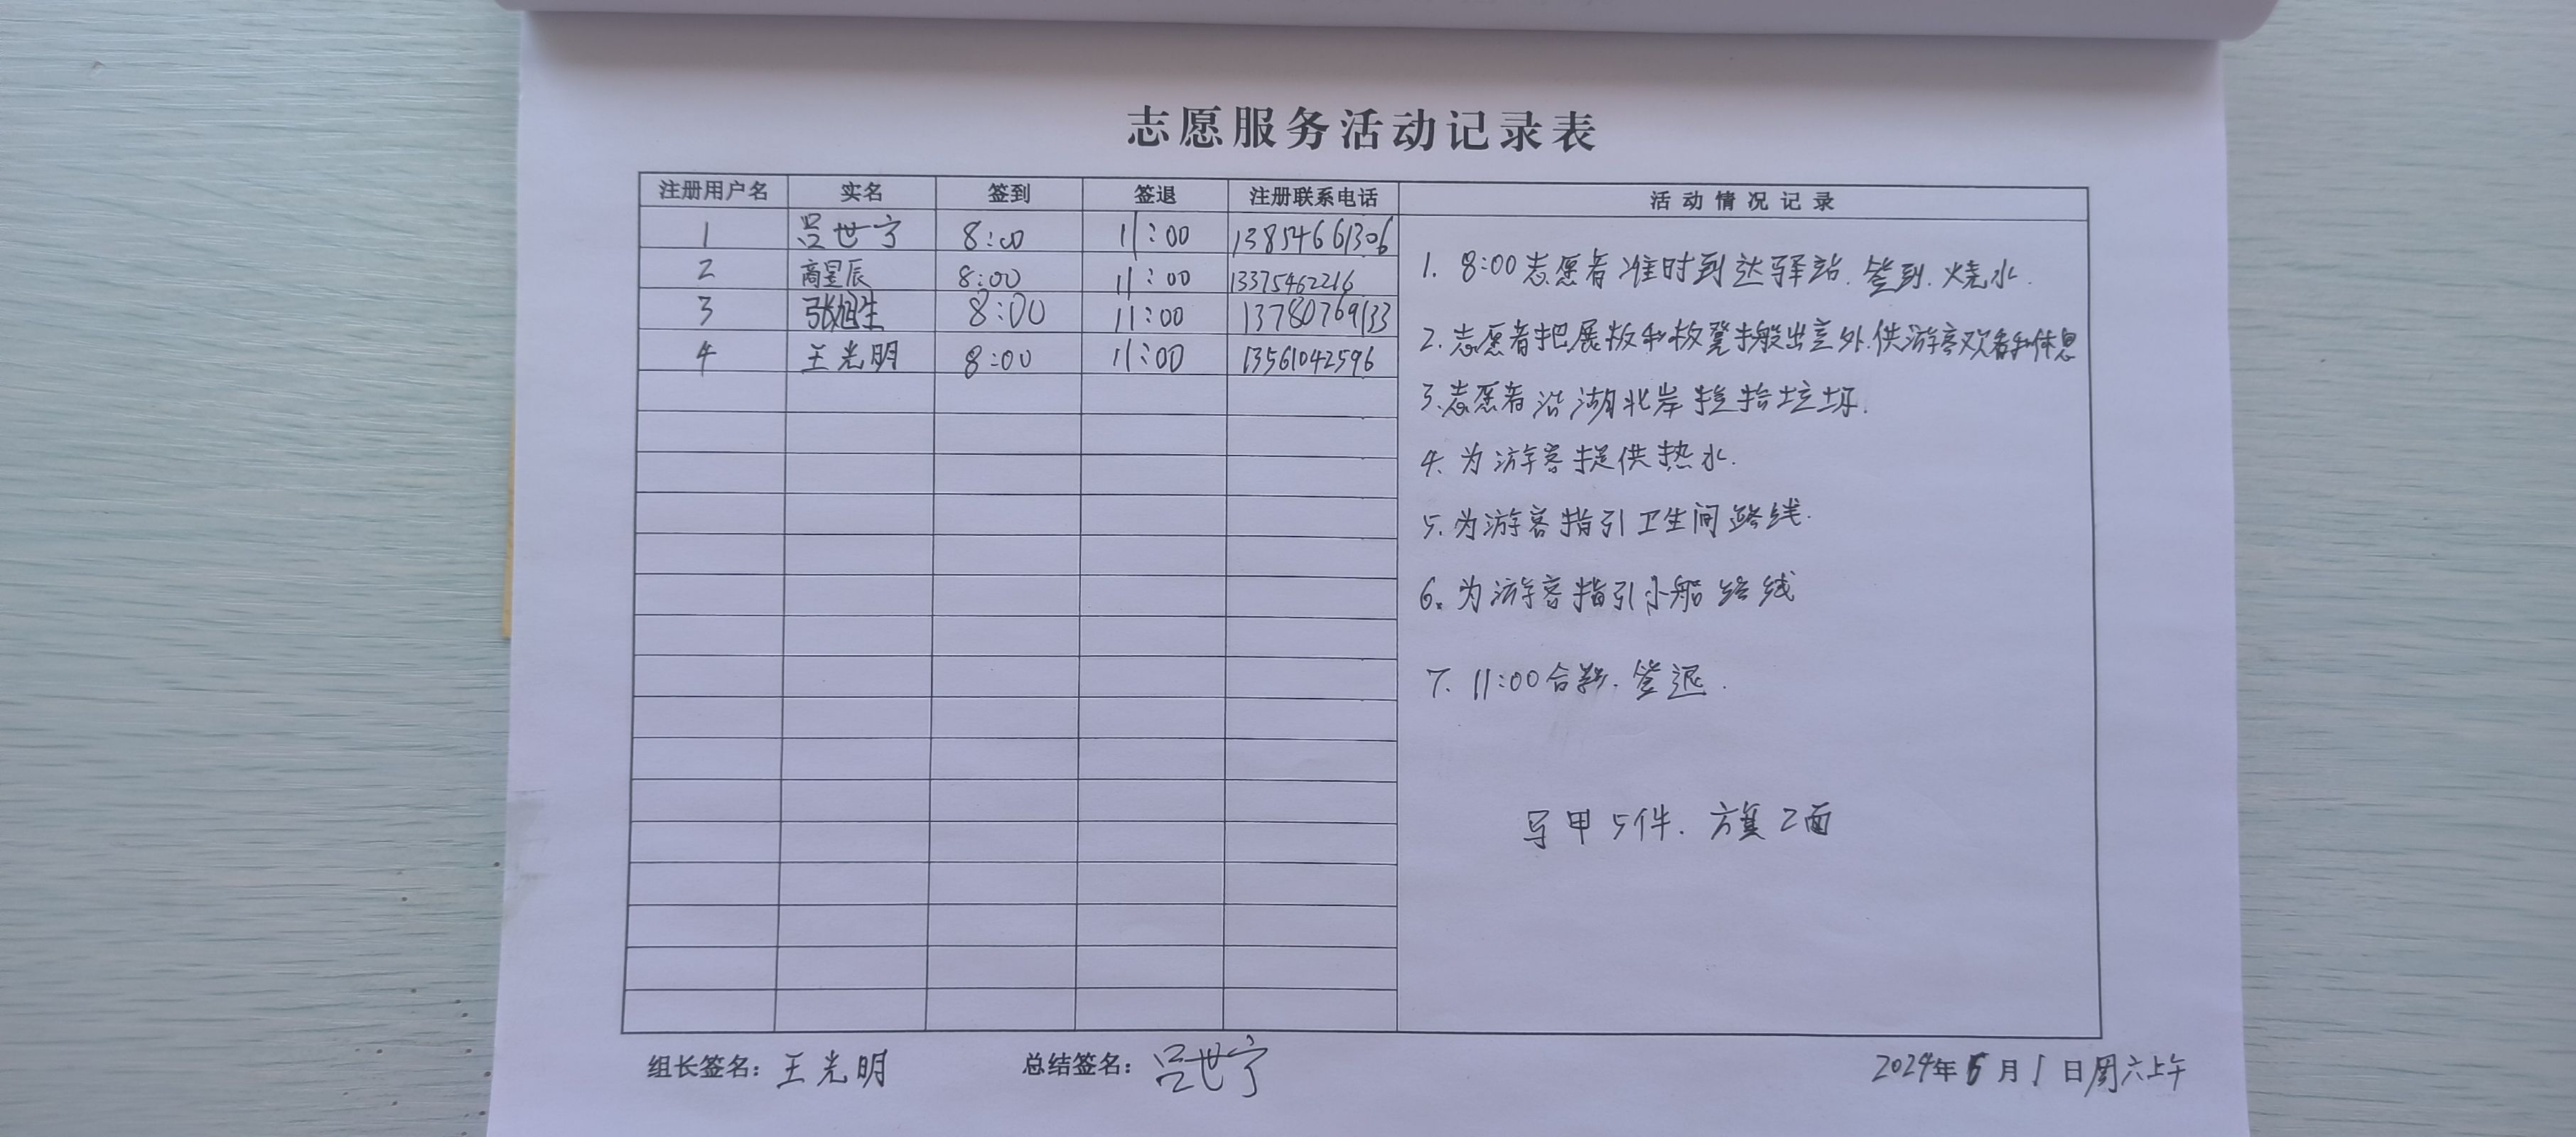 志愿服务活动记录表
注册用户名 实名 签到 签退 注册联系电话 活动情况记录
1 吕世宁 8:00 11:00 13854661306
2 商星辰 8:00 11:00 13375462216
3 张旭生 8:00 11:00 13780769133
4 王光明 8:00 11:00 13561042596
1. 8:00志愿者准时到达驿站.签到.烧水.
2.志愿者把展板和板凳搬出室外.供游客观看和休息
3.志愿者沿湖北岸捡拾垃圾.
4.为游客提供热水.
5.为游客指引卫生间路线.
6.为游客指引小船路线
7. 11:00合影.签退.
马甲5件.方旗2面
组长签名：王光明 总结签名：吕世宁 2024年6月1日周六上午